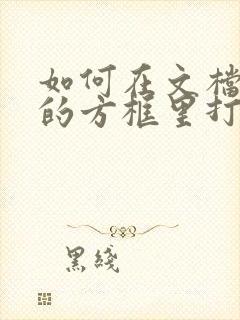 如何在文檔
的方框里打
黑綫